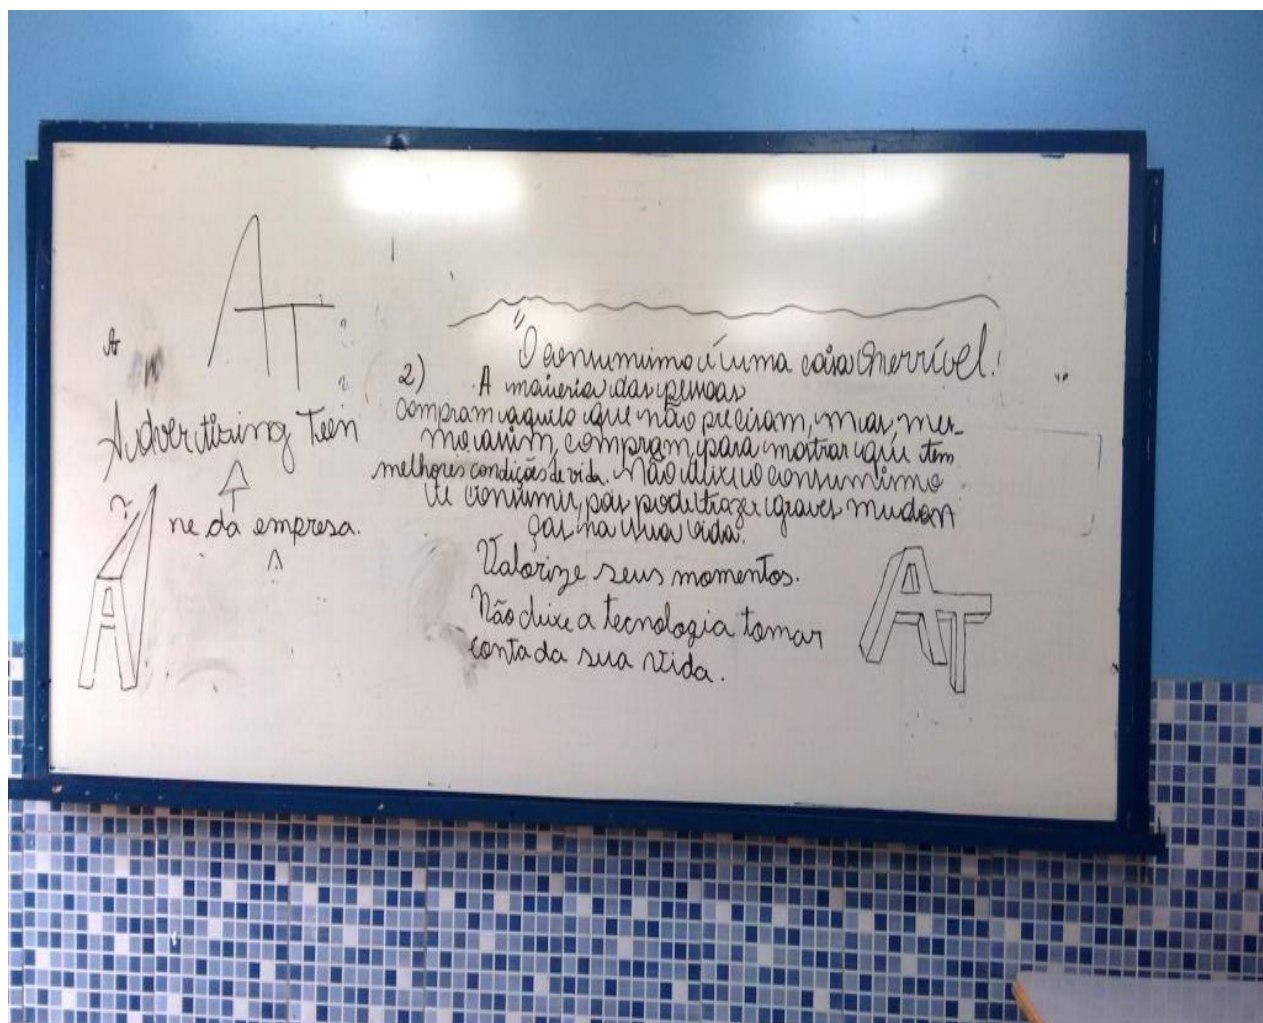 AT
A
Advertising Teen
ne da empresa.
A
"O consumimo é uma coisa (horrível.
2) A maioria das pessoas
compram aquilo que não precisam, mas mes-
mo assim, compram para mostrar que tem
melhores condições de vida. Não deixe o consumismo
te consumir, pois pode trazer graves mudan
ças na sua vida.
Valorize seus momentos.
Não deixe a tecnologia tomar
conta da sua vida.
AT